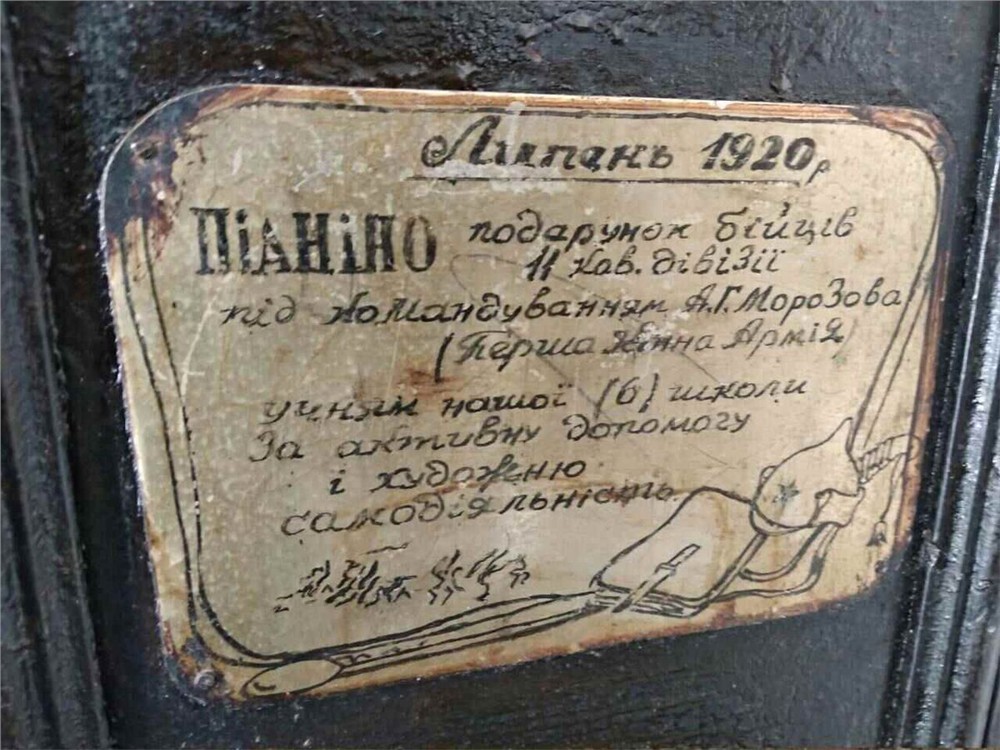 Липень 1920р
ПІАНІНО подарунок бійців
11 Кав. дівізії
під командуванням А.Г. Морозова
(Перша Кінна Армія)
учням нашої (6) школи
За активну допомогу
і художню
самодіяльність